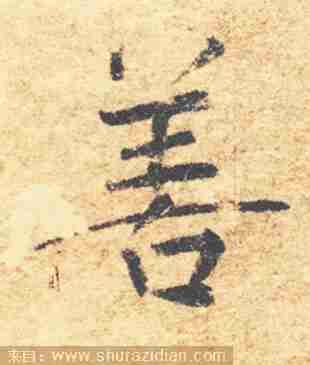 善
来自：www.shurazidian.com